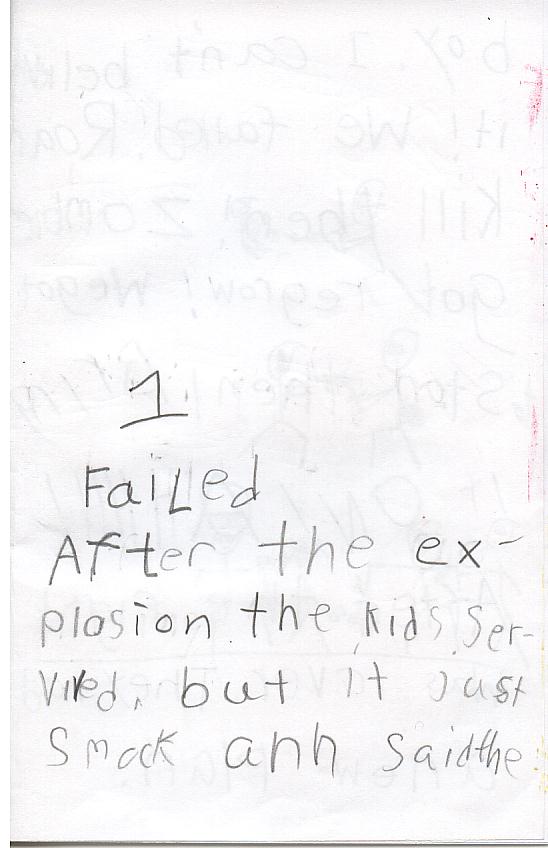 1
Failed
After the ex-
plosion the kids ser-
vived, but it Just
Smock ann saidthe